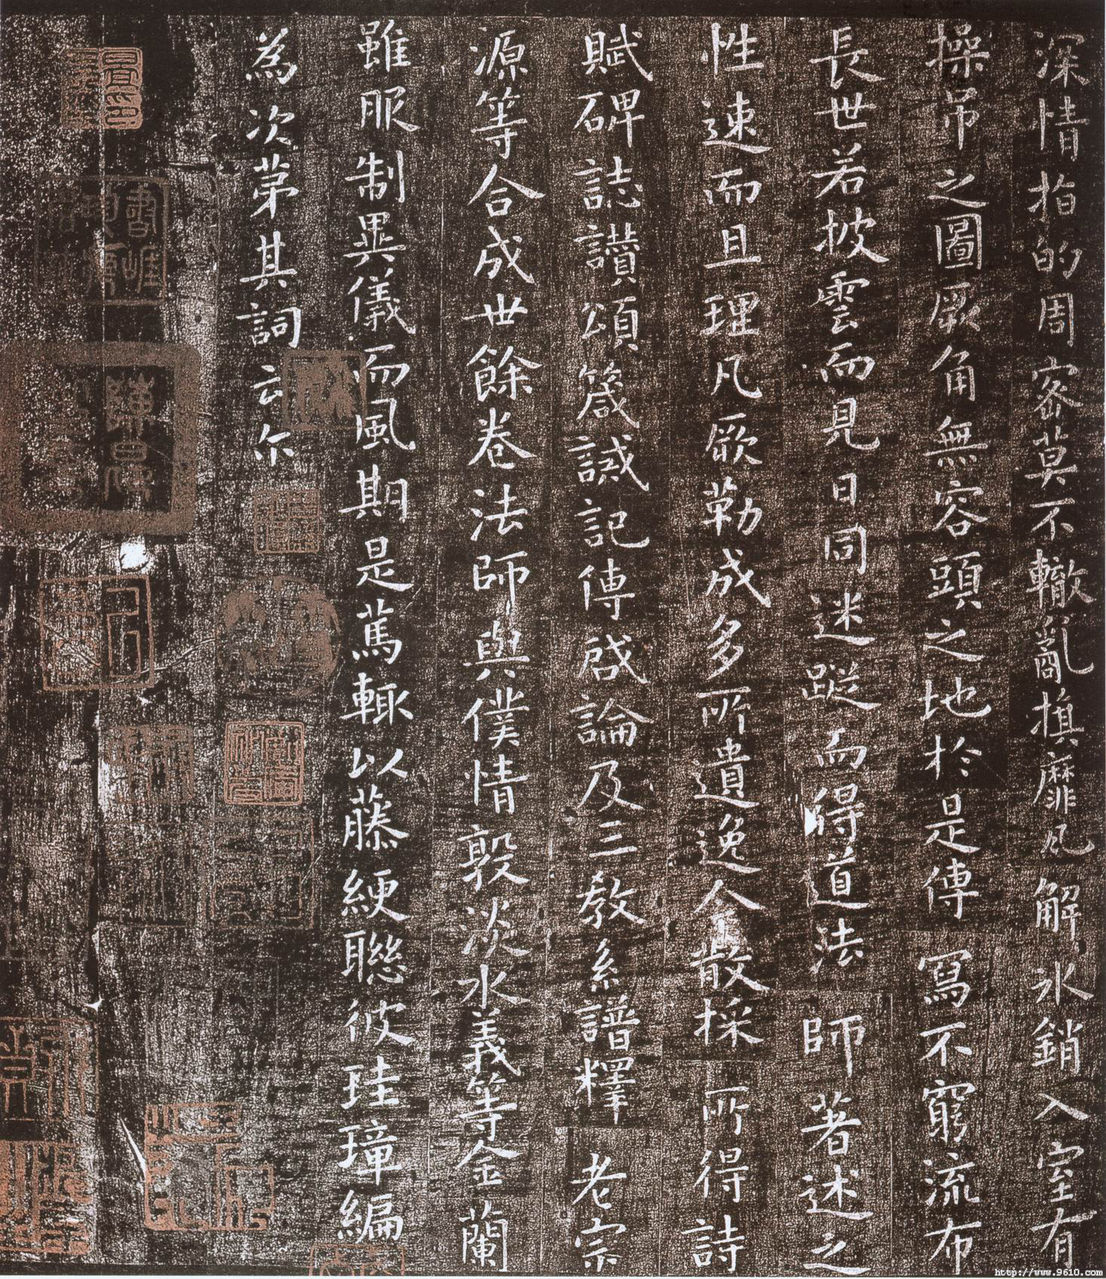 深情指的周密莫不轍亂旗靡風解冰銷入室有
操弟之圖厥角無容頭之地於是傳寫不窮流布
長世若披雲而見日同迷蹤而得道法師著述之
性速而且理凡厥勒成多所遺逸人散採所得詩
賦碑誌讚頌箴誡記傳啓論及三教系譜釋老宗
源等合成世餘卷法師與僕情敦淡水義等金蘭
雖服制異儀而風期是篤輒以藤綆聯彼珪璋編
為次第其詞云尔
http://www.9610.com